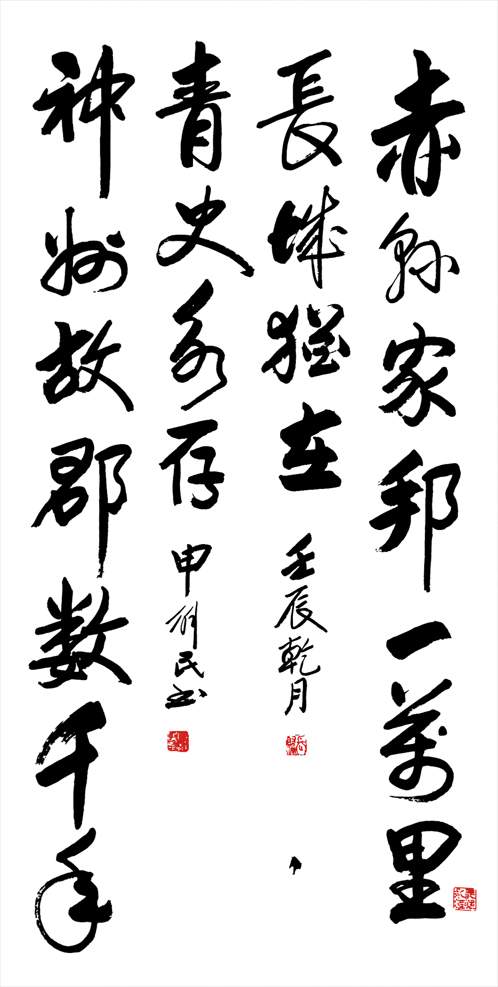 赤縣家邦一萬里
長城猶在
壬辰乾月
神州故郡数千年
青史永存
申民书